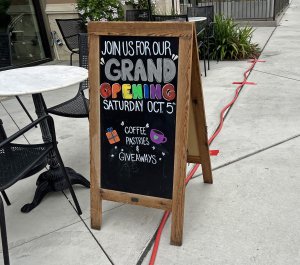 OPEN
JOIN US FOR OUR
"GRAND
OPENING"
SATURDAY OCT 5th
COFFEE
PASTRIES
&
GIVEAWAYS